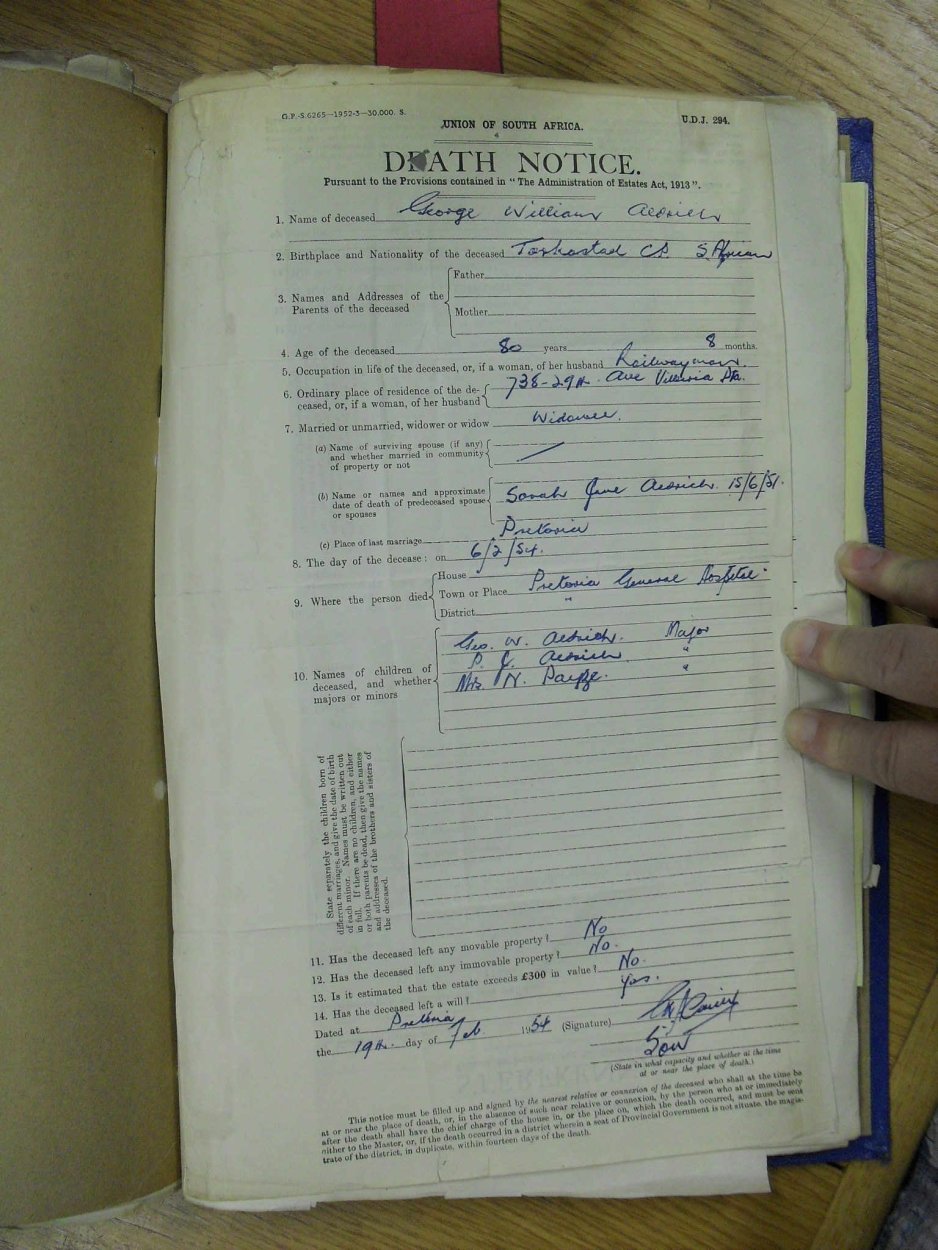 G.P.-S.6265—1952-3—30,000. S.
U.D.J. 294.
UNION OF SOUTH AFRICA.
DEATH NOTICE.
Pursuant to the Provisions contained in "The Administration of Estates Act, 1913".
1. Name of deceased George William Aldrich
2. Birthplace and Nationality of the deceased Tarkastad C.P. S. African
3. Names and Addresses of the Parents of the deceased
Father
Mother
4. Age of the deceased 80 years 8 months.
5. Occupation in life of the deceased, or, if a woman, of her husband Railwayman
6. Ordinary place of residence of the de-
ceased, or, if a woman, of her husband
738-29th Ave Villieria Pta.
7. Married or unmarried, widower or widow Widower.
(a) Name of surviving spouse (if any)
and whether married in community
of property or not
(b) Name or names and approximate
date of death of predeceased spouse
or spouses
Sarah Jane Aldrich. 15/6/51.
(c) Place of last marriage Pretoria
8. The day of the decease: on 6/2/54.
9. Where the person died
House
Town or Place Pretoria General Hospital
District "
10. Names of children of
deceased, and whether
majors or minors
Geo. W. Aldrich. Major
P. J. Aldrich "
Mrs. N. "
State separately the children born of
different marriages, and give the date of birth
of each minor. Names must be written out
in full. If there are no children, and either
or both parents be dead, then give the names
and addresses of the brothers and sisters of
the deceased.
11. Has the deceased left any movable property? No
12. Has the deceased left any immovable property? No.
13. Is it estimated that the estate exceeds £300 in value? No.
14. Has the deceased left a will? Yes.
Dated at Pretoria
the 19th day of Feb 1954 (Signature)
Son
(State in what capacity and whether at the time
at or near the place of death.)
This notice must be filled up and signed by the nearest relative or connexion of the deceased who shall at the time be
at or near the place of death, or, in the absence of such near relative or connexion, by the person who at or immediately
after the death shall have the chief charge of the house in, or the place on, which the death occurred, and must be sent
either to the Master, or, if the death occurred in a district wherein a seat of Provincial Government is not situate, the magis-
trate of the district, in duplicate, within fourteen days of the death.